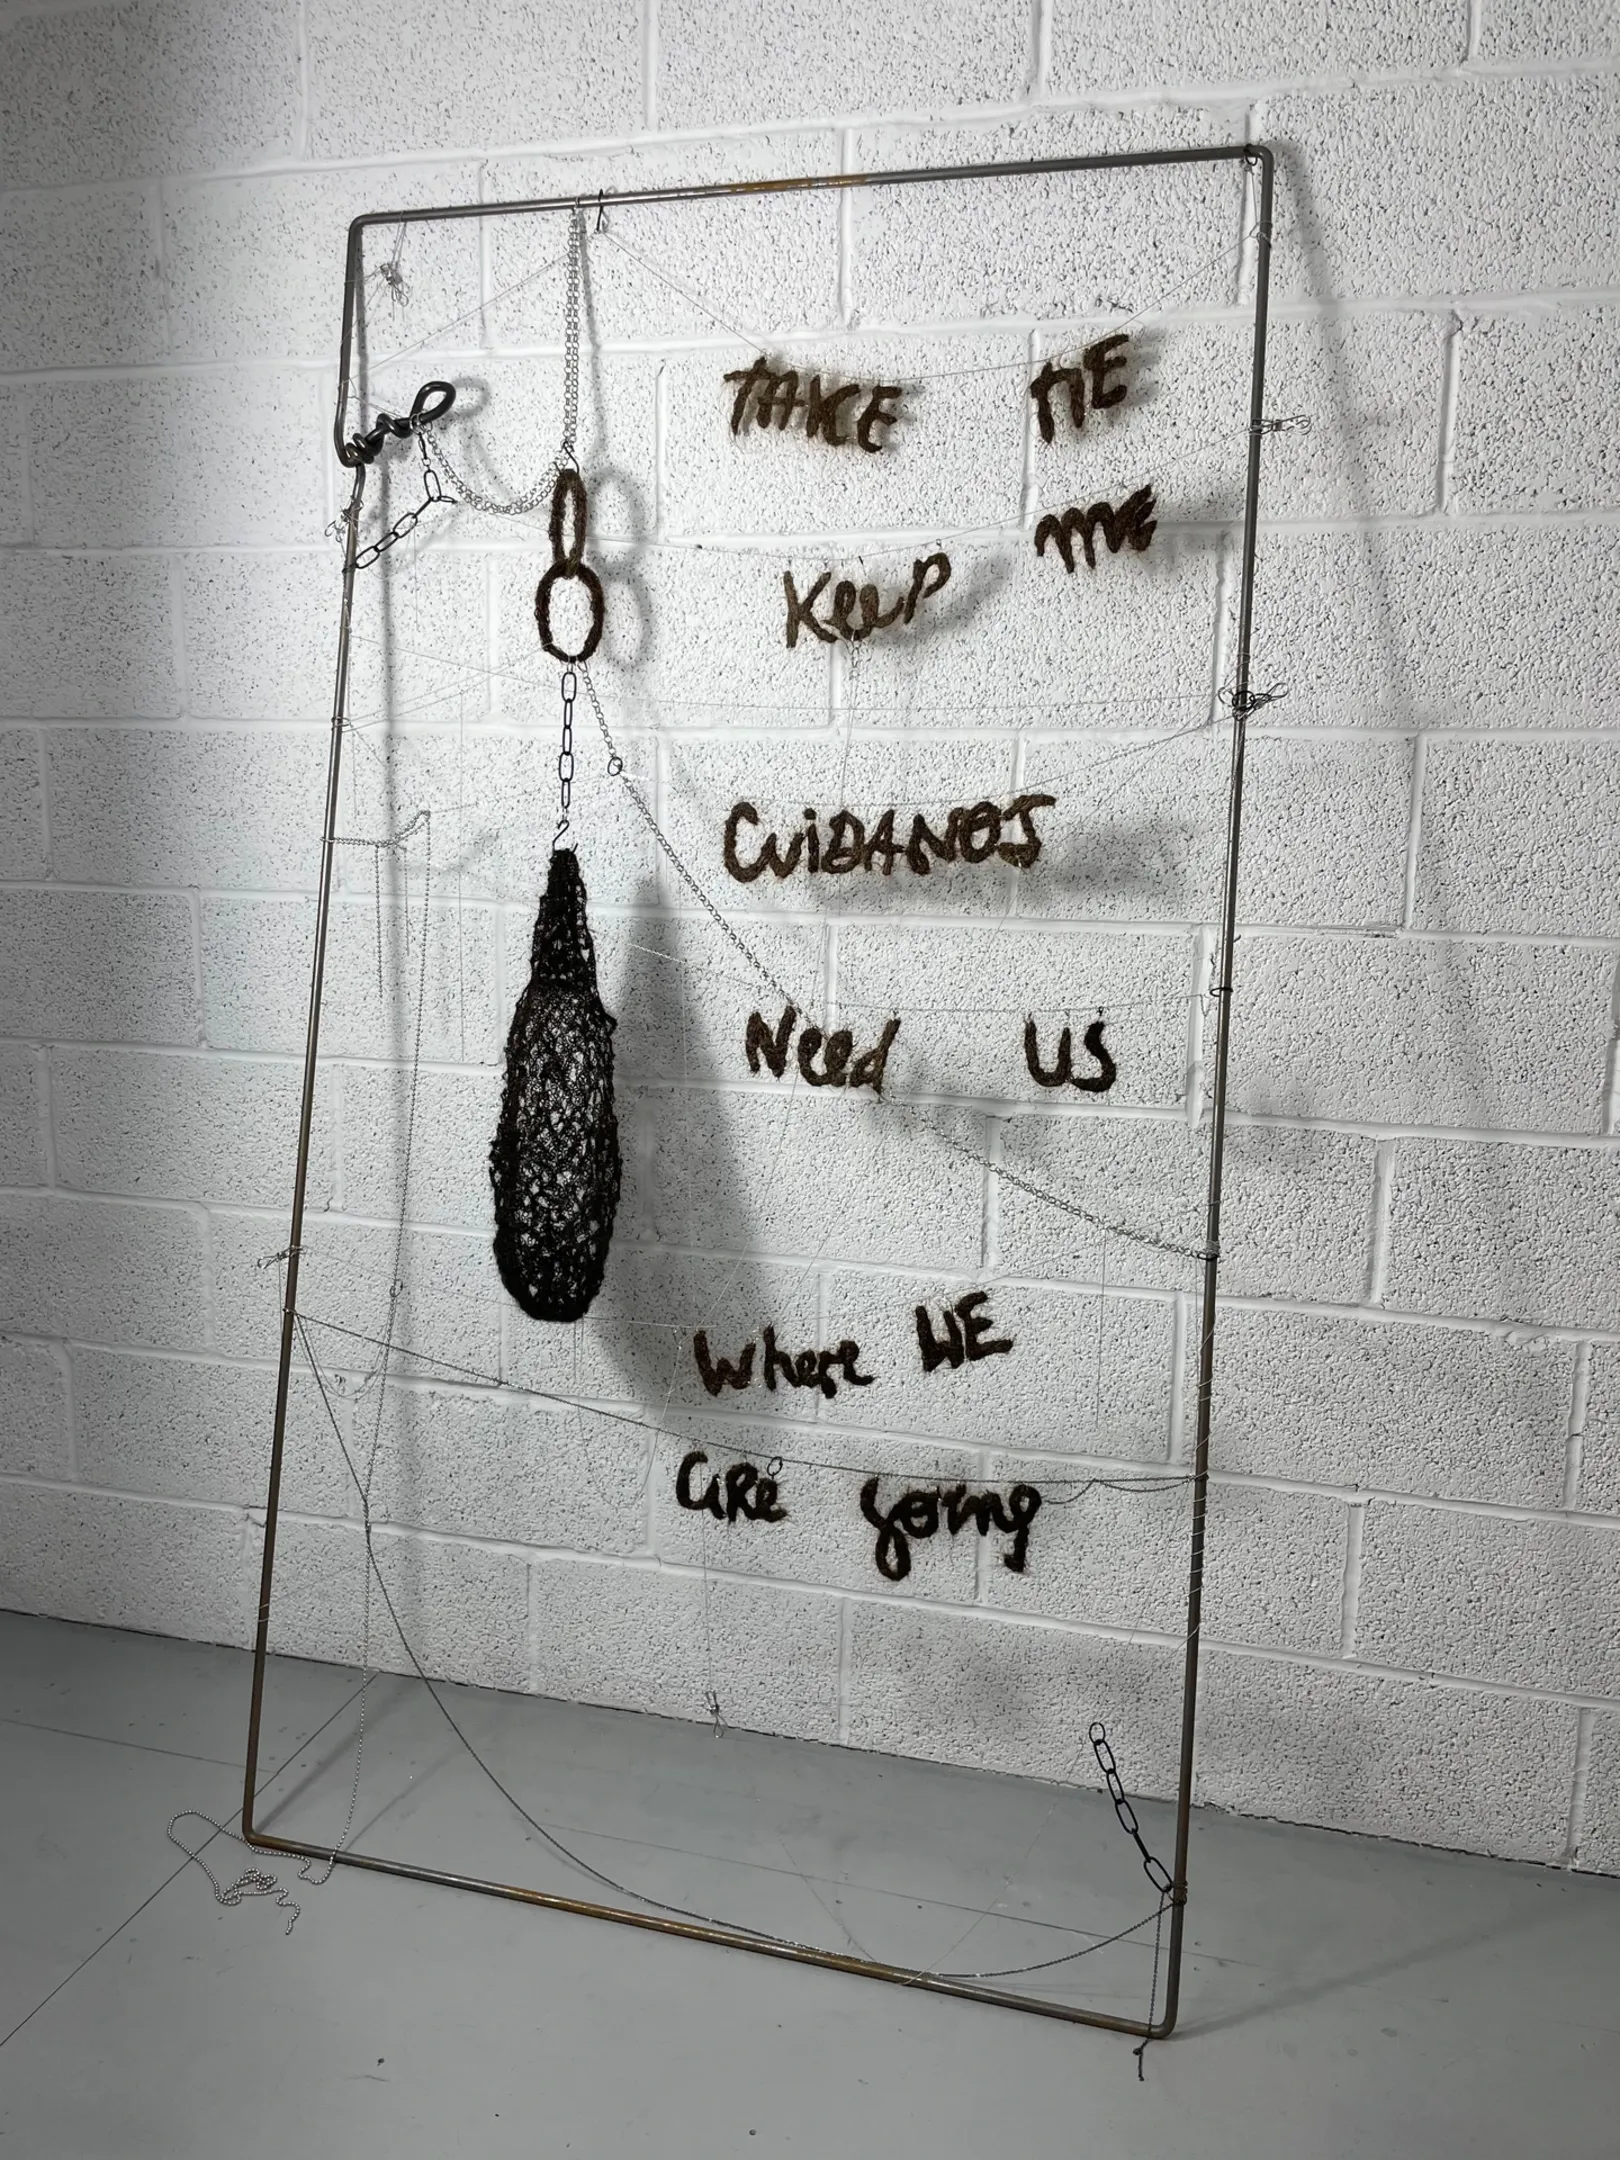 TAKE ME
Keep me
CUiDANOS
Need US
Where WE
are going